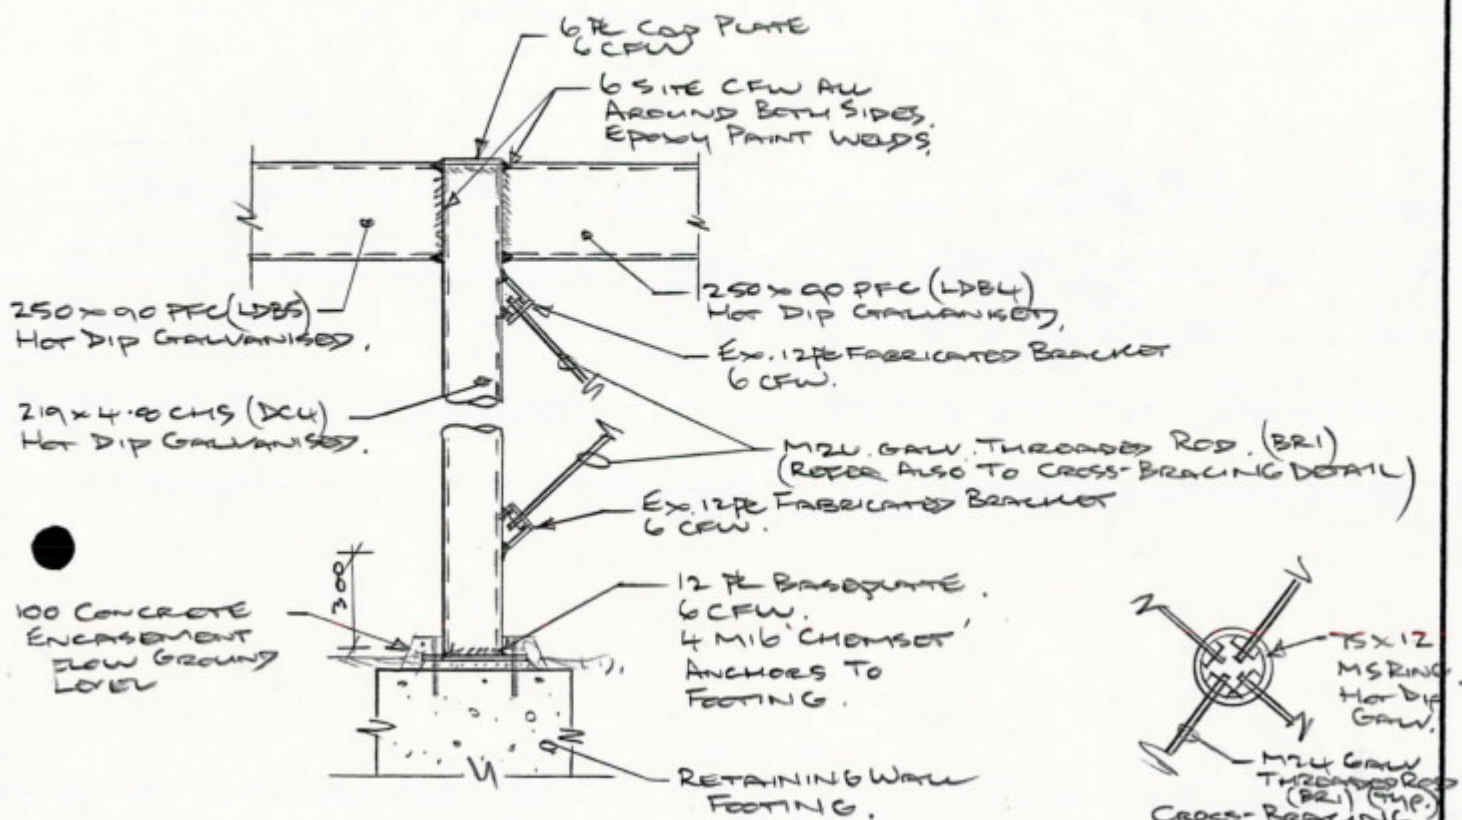 6 PL CAP PLATE
6 CFW
6 SITE CFW ALL
AROUND BOTH SIDES.
EPOXY PAINT WELDS.
250 x 90 PFC (LDB5)
HOT DIP GALVANISED.
250 x 90 PFC (LDB4)
HOT DIP GALVANISED.
EX. 12 PL FABRICATED BRACKET
6 CFW.
219 x 4.8 CHS (DC4)
HOT DIP GALVANISED.
M24 GALV. THREADED ROD. (BR1)
(REFER ALSO TO CROSS-BRACING DETAIL)
EX. 12 PL FABRICATED BRACKET
6 CFW.
300
100 CONCRETE
ENCASEMENT
LEVEL
12 PL BASEPLATE.
6 CFW.
4 M16 'CHEMSET'
ANCHORS TO
FOOTING.
RETAINING WALL
FOOTING.
75 X 12
MS RING.
HOT DIP
GALV.
M24 GALV
THREADED ROD
(BR1) (TYP.)
CROSS-BRACING